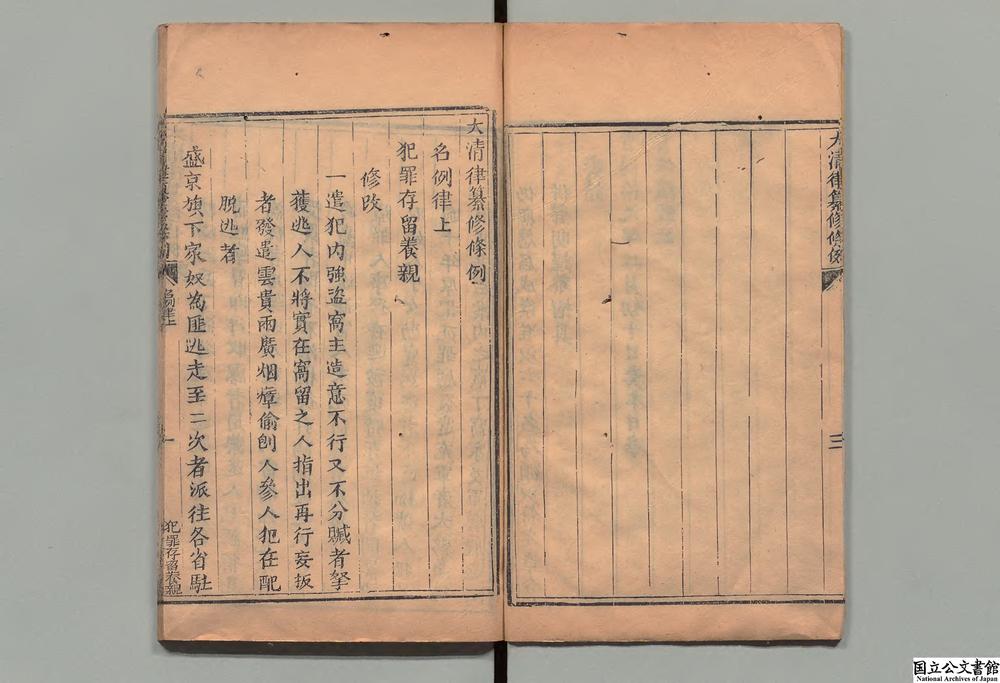 大清律纂修條例
三
大清律纂修條例
名例律上
犯罪存留養親
修改
一遣犯內強盜窩主造意不行又不分贓者拏
獲逃人不將實在窩留之人指出再行妄扳
者發遣雲貴兩廣烟瘴偷刨人參人犯在配
脫逃者
盛京旗下家奴為匪逃走至二次者派往各省駐
犯罪存留養親
国立公文書館
National Archives of Japan